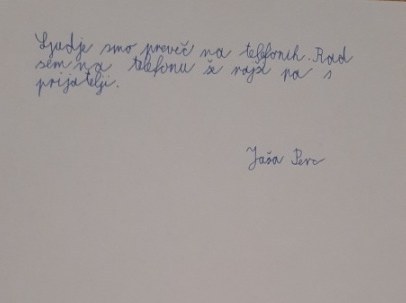 Ljudje smo preveč na telefonih. Rad
sem na telefonu še rajši pa s
prijatelji.
Jaša Perc